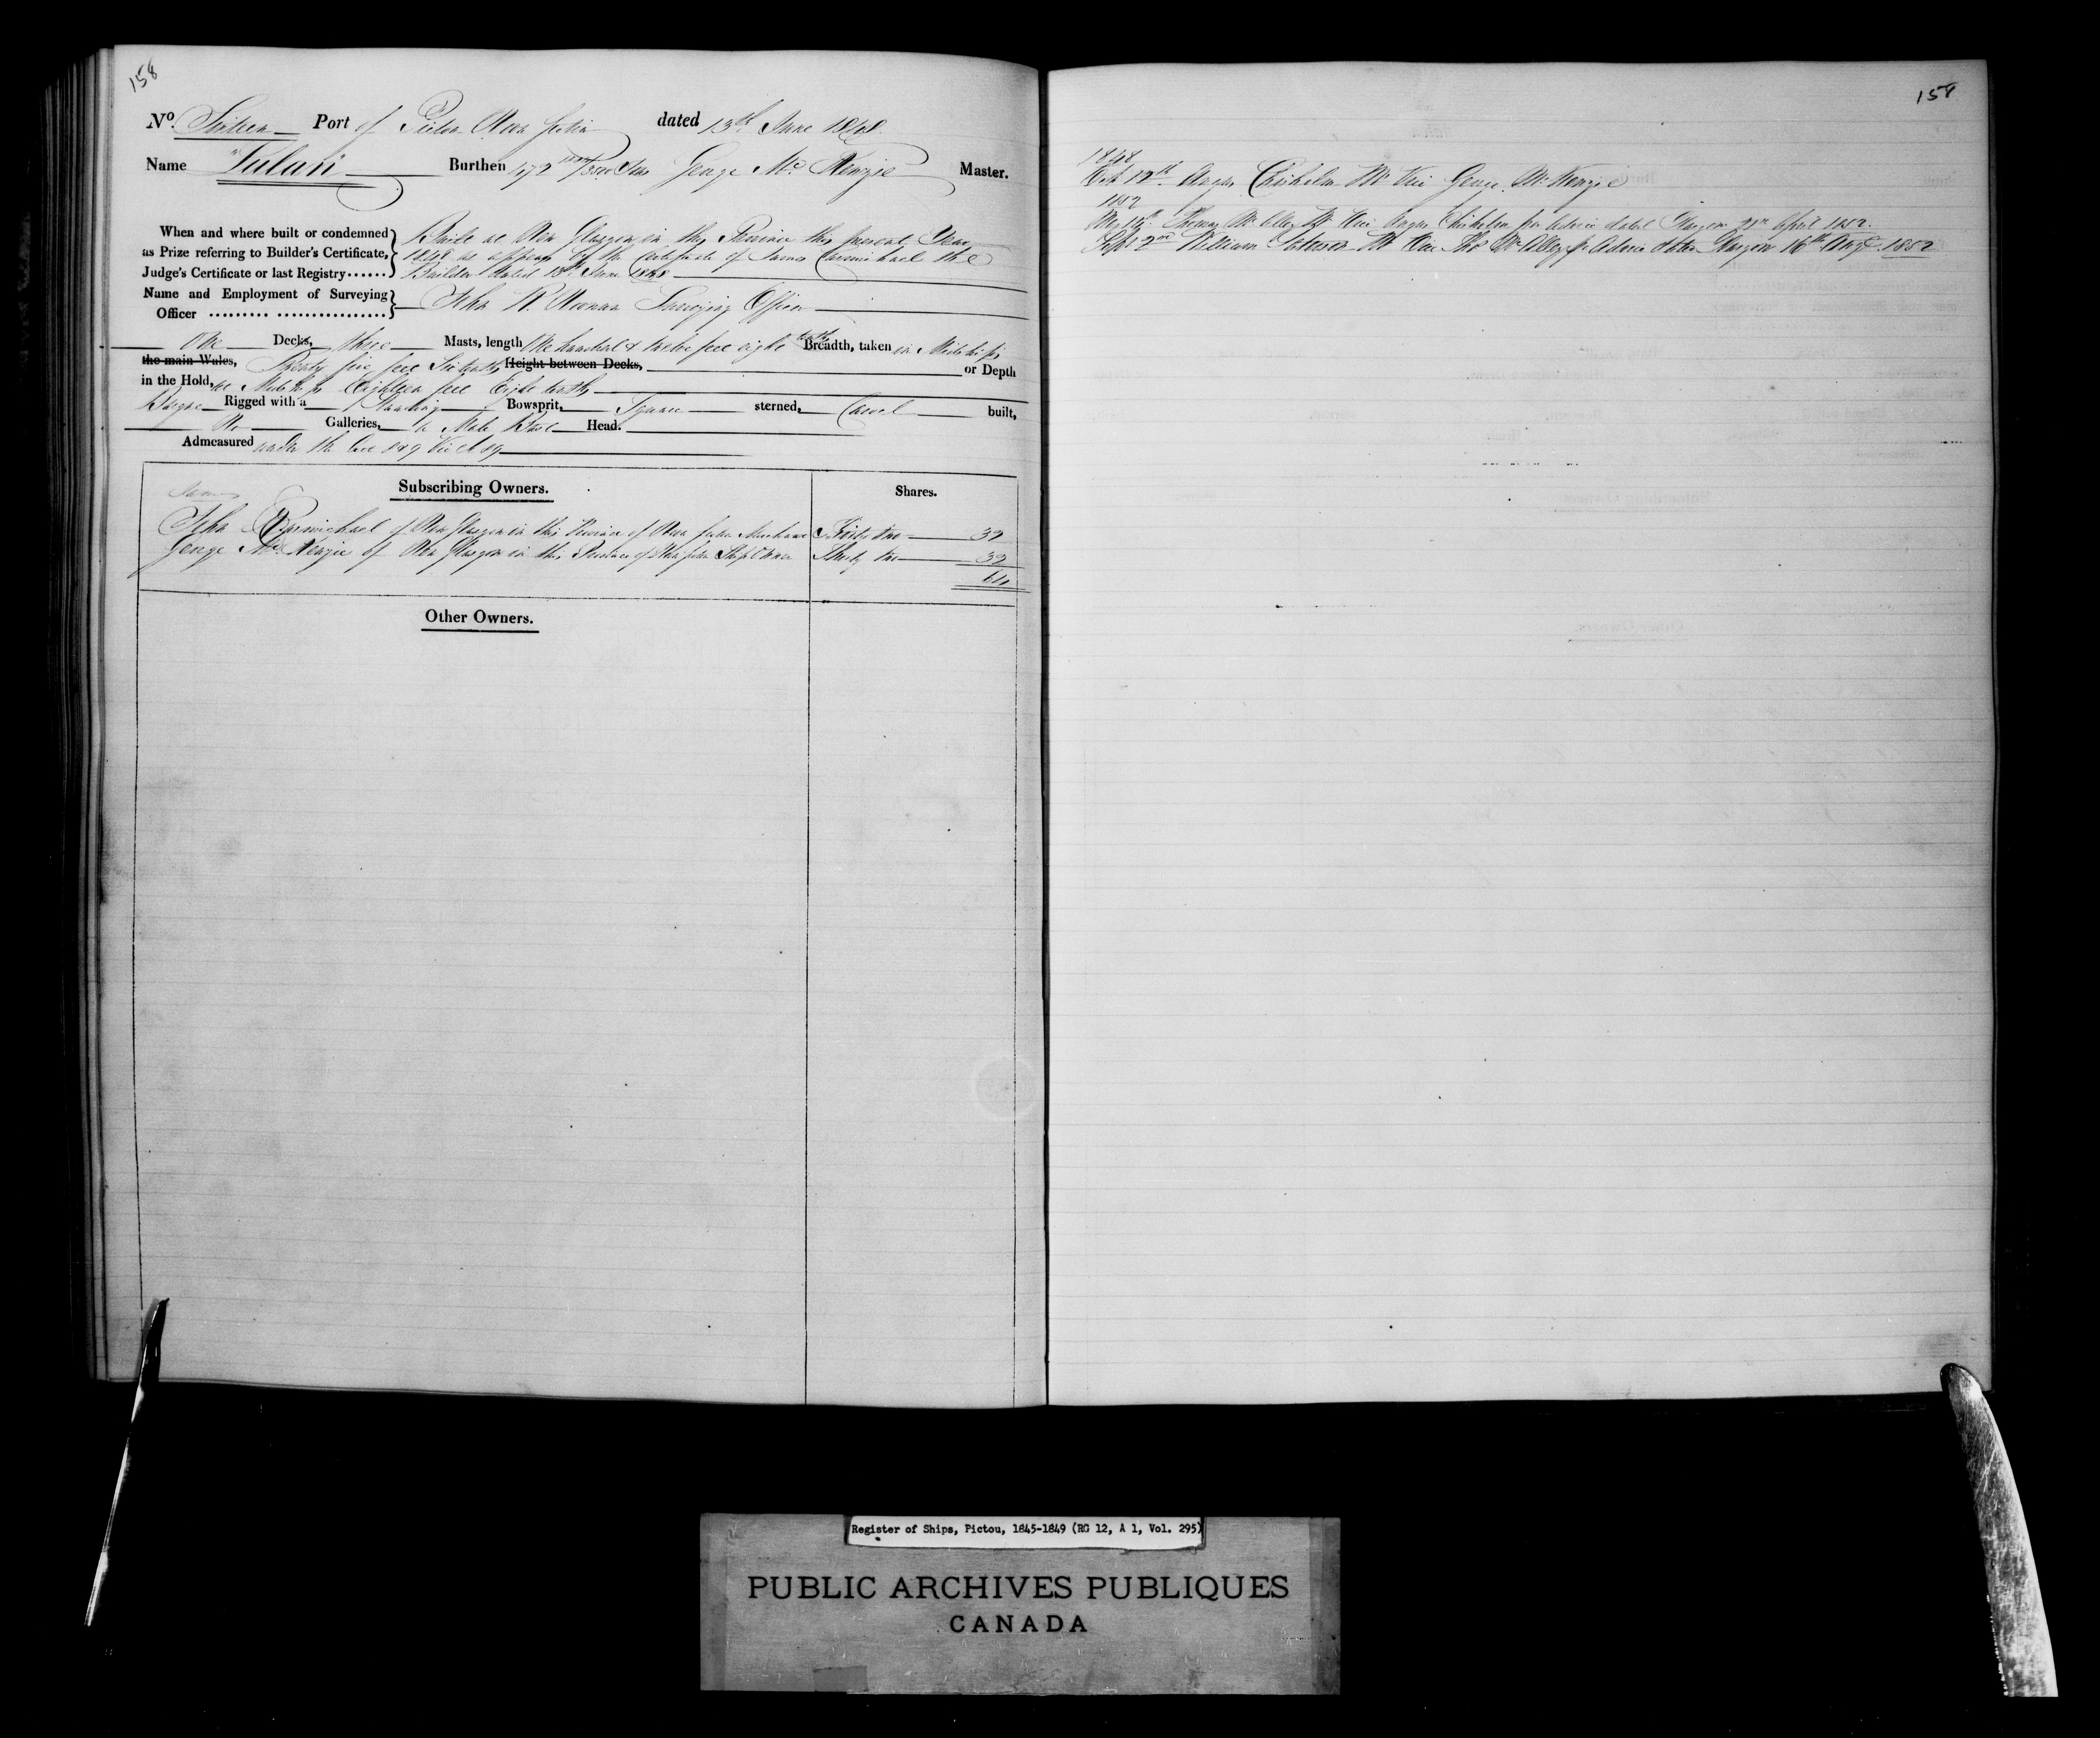 158
No. Sixteen Port of Pictou Nova Scotia dated 13th June 1848
Name "Sulari" Burthen 472 /3500 Tons George McKenzie Master.
When and where built or condemned Built at New Glasgow in this Province this present Year
as Prize referring to Builder's Certificate, 1848 as appears by the Certificate of James Carmichael the
Judge's Certificate or last Registry Builder dated 13th June 1848
Name and Employment of Surveying
Officer John R. Noonan Surveying Officer
One Decks, three Masts, length One hundred & twelve feet eight tenths Breadth, taken in Midships
the main Wales, Twenty five feet Six tenths Height between Decks, or Depth
in the Hold, at Midships Eighteen feet Eight tenths
Barque Rigged with a Standing Bowsprit, Square sterned, Carvel built,
No Galleries, a Male Bust Head.
Admeasured under the Act 8 & 9 Vic C 89
Subscribing Owners. Shares.
James
John Carmichael of New Glasgow in this Province of Nova Scotia Merchant Thirty two 32
George McKenzie of New Glasgow in this Province of Nova Scotia Ship Owner Thirty two 32
64
Other Owners.
158
1848
Oct 12th Angus Chisholm Mr Vice George McKenzie
1852
May 15th Thomas Mr Vice Angus Chisholm per Advice dated Glasgow April 1852.
Sept 2nd William Mr Vice Thos per Advice dated Glasgow 16th Augt 1852
Register of Ships, Pictou, 1845-1849 (RG 12, A 1, Vol. 295)
PUBLIC ARCHIVES PUBLIQUES
CANADA